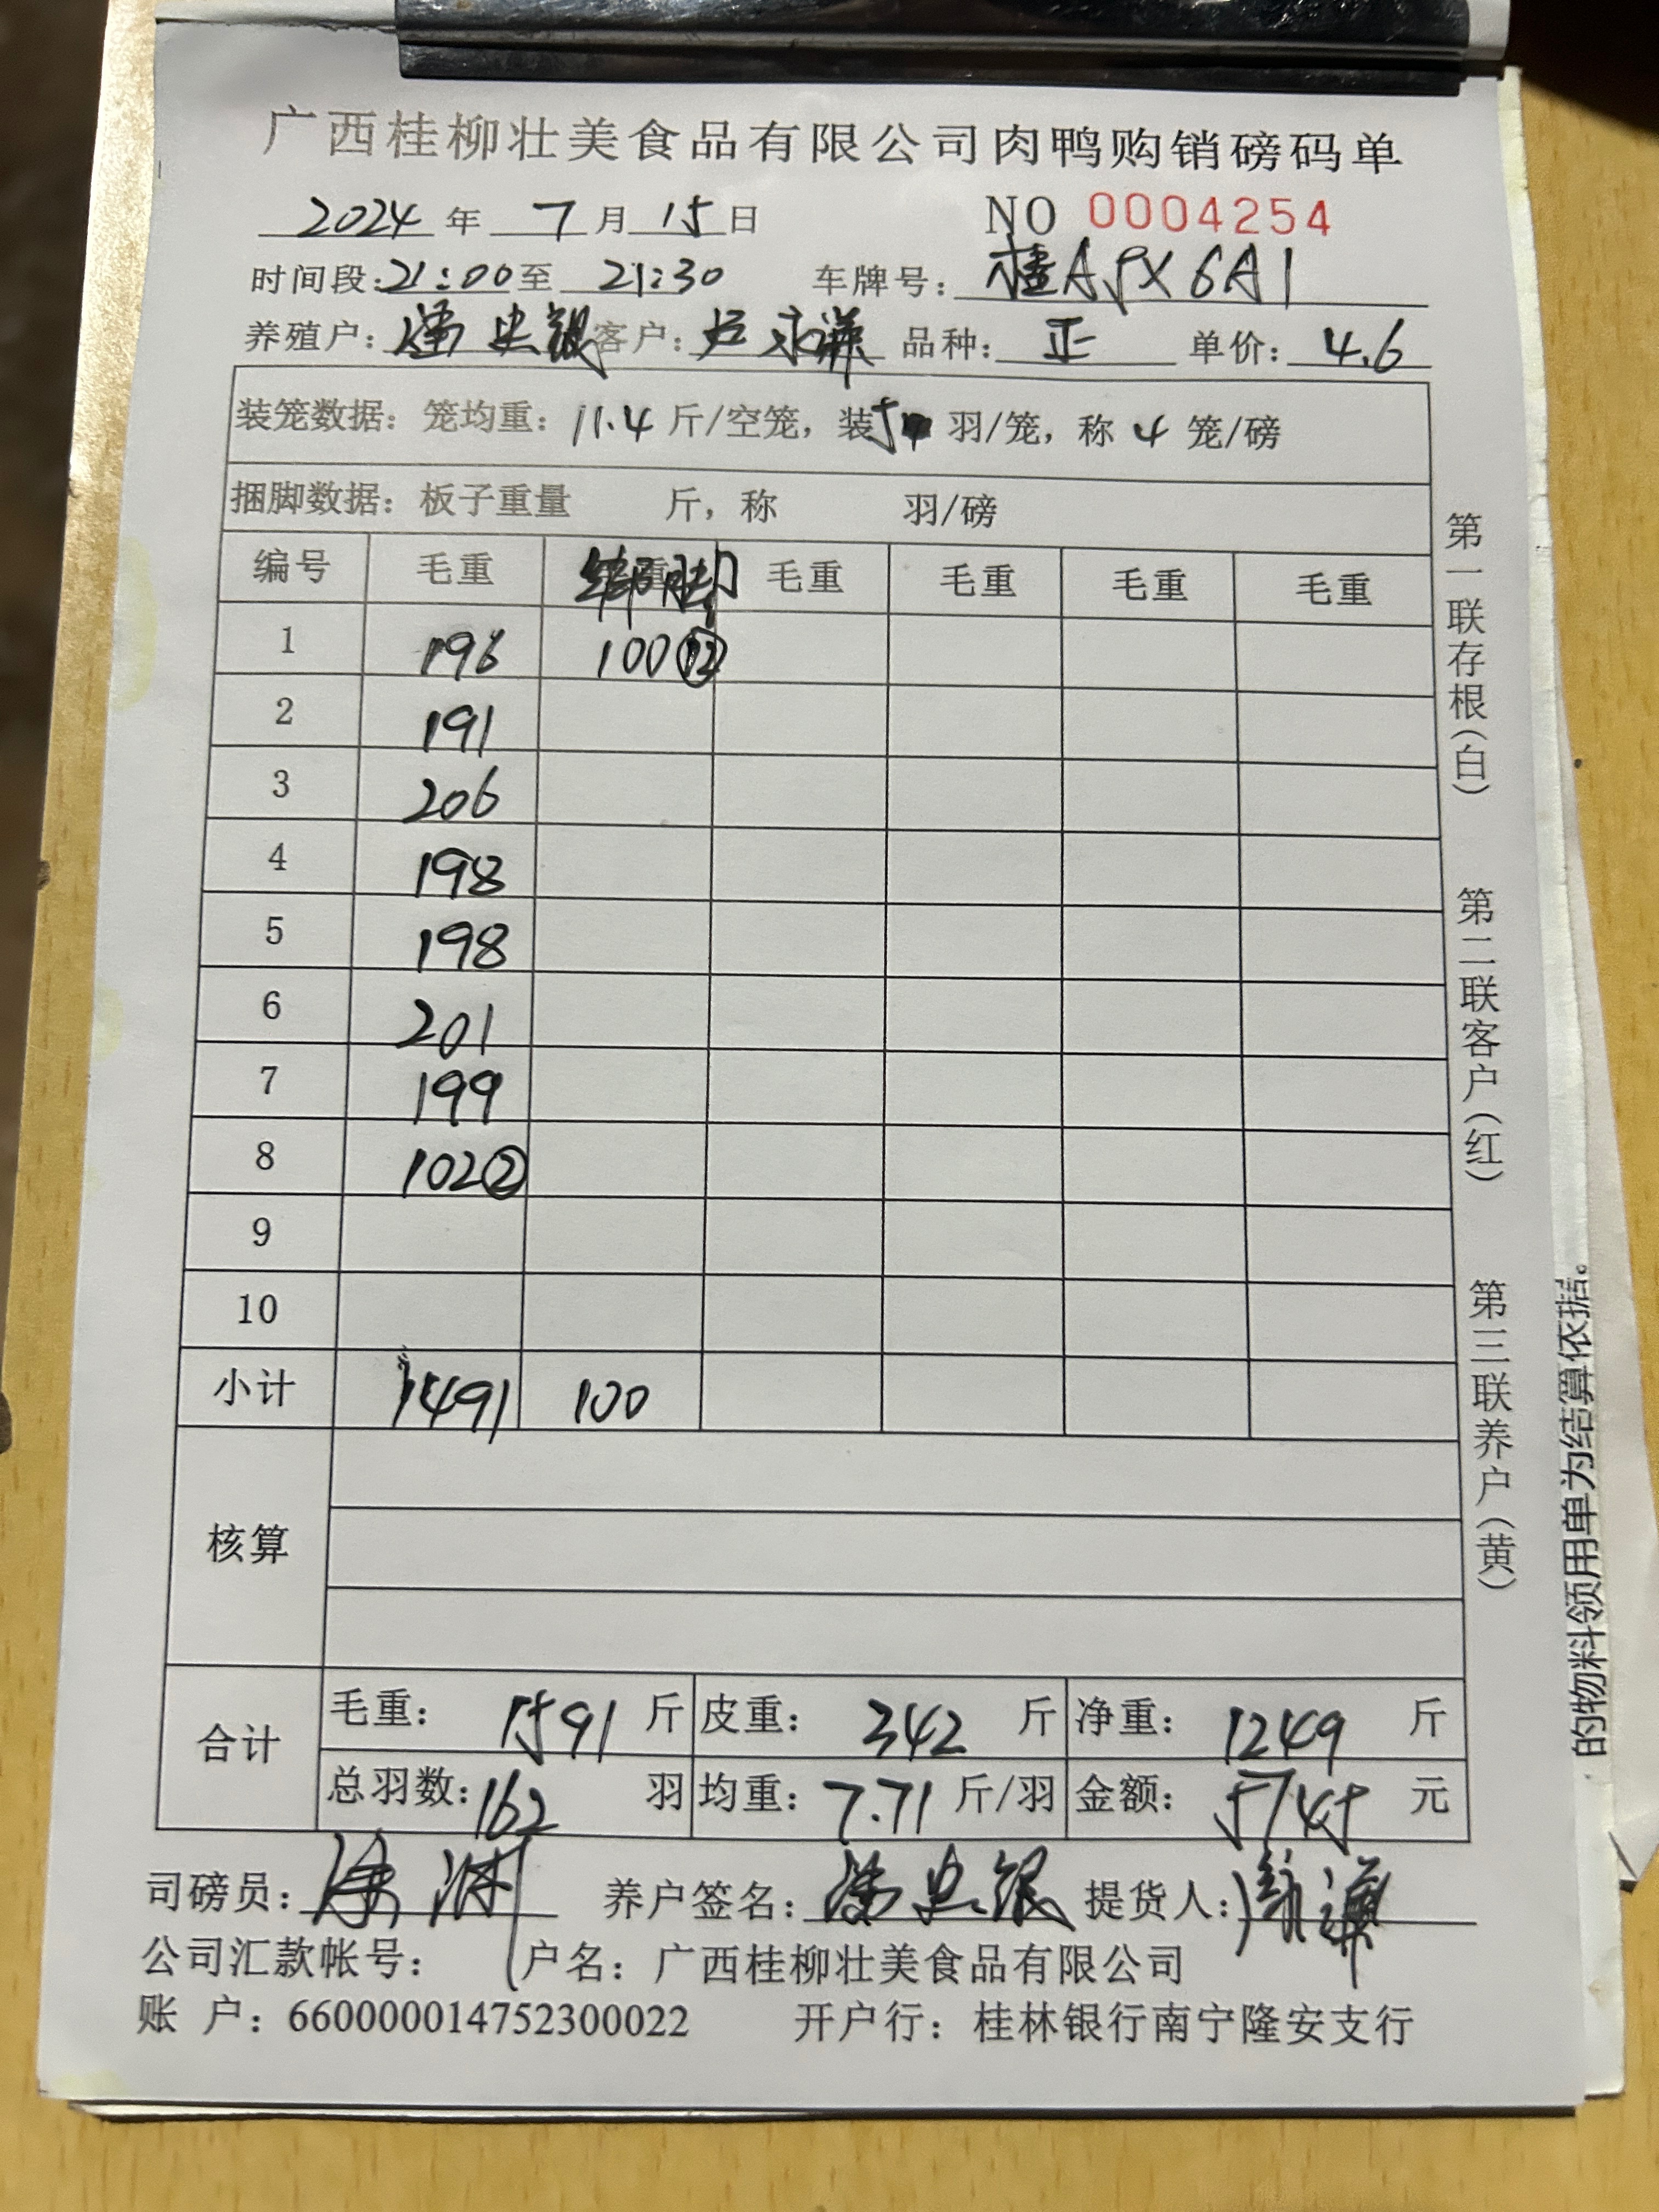 广西桂柳壮美食品有限公司肉鸭购销磅码单
2024 年 7 月 15 日 NO 0004254
时间段:21:00至 21:30 车牌号: 桂A5X6A1
养殖户: 客户: 品种: 正 单价: 4.6
装笼数据: 笼均重: 11.4 斤/空笼, 装5 羽/笼, 称 4 笼/磅
捆脚数据: 板子重量 斤, 称 羽/磅
编号 毛重 绑脚 毛重 毛重 毛重 毛重
1 196 100⑫
2 191
3 206
4 198
5 198
6 201
7 199
8 102②
9
10
小计 1491 100
核算
合计 毛重: 1591 斤 皮重: 342 斤 净重: 1249 斤
总羽数: 162 羽 均重: 7.71 斤/羽 金额: 5745 元
司磅员: 养户签名: 提货人:
公司汇款帐号: 户名: 广西桂柳壮美食品有限公司
账 户: 660000014752300022 开户行: 桂林银行南宁隆安支行
第一联存根(白)
第二联客户(红)
第三联养户(黄)
的物料领用单为结算依据。